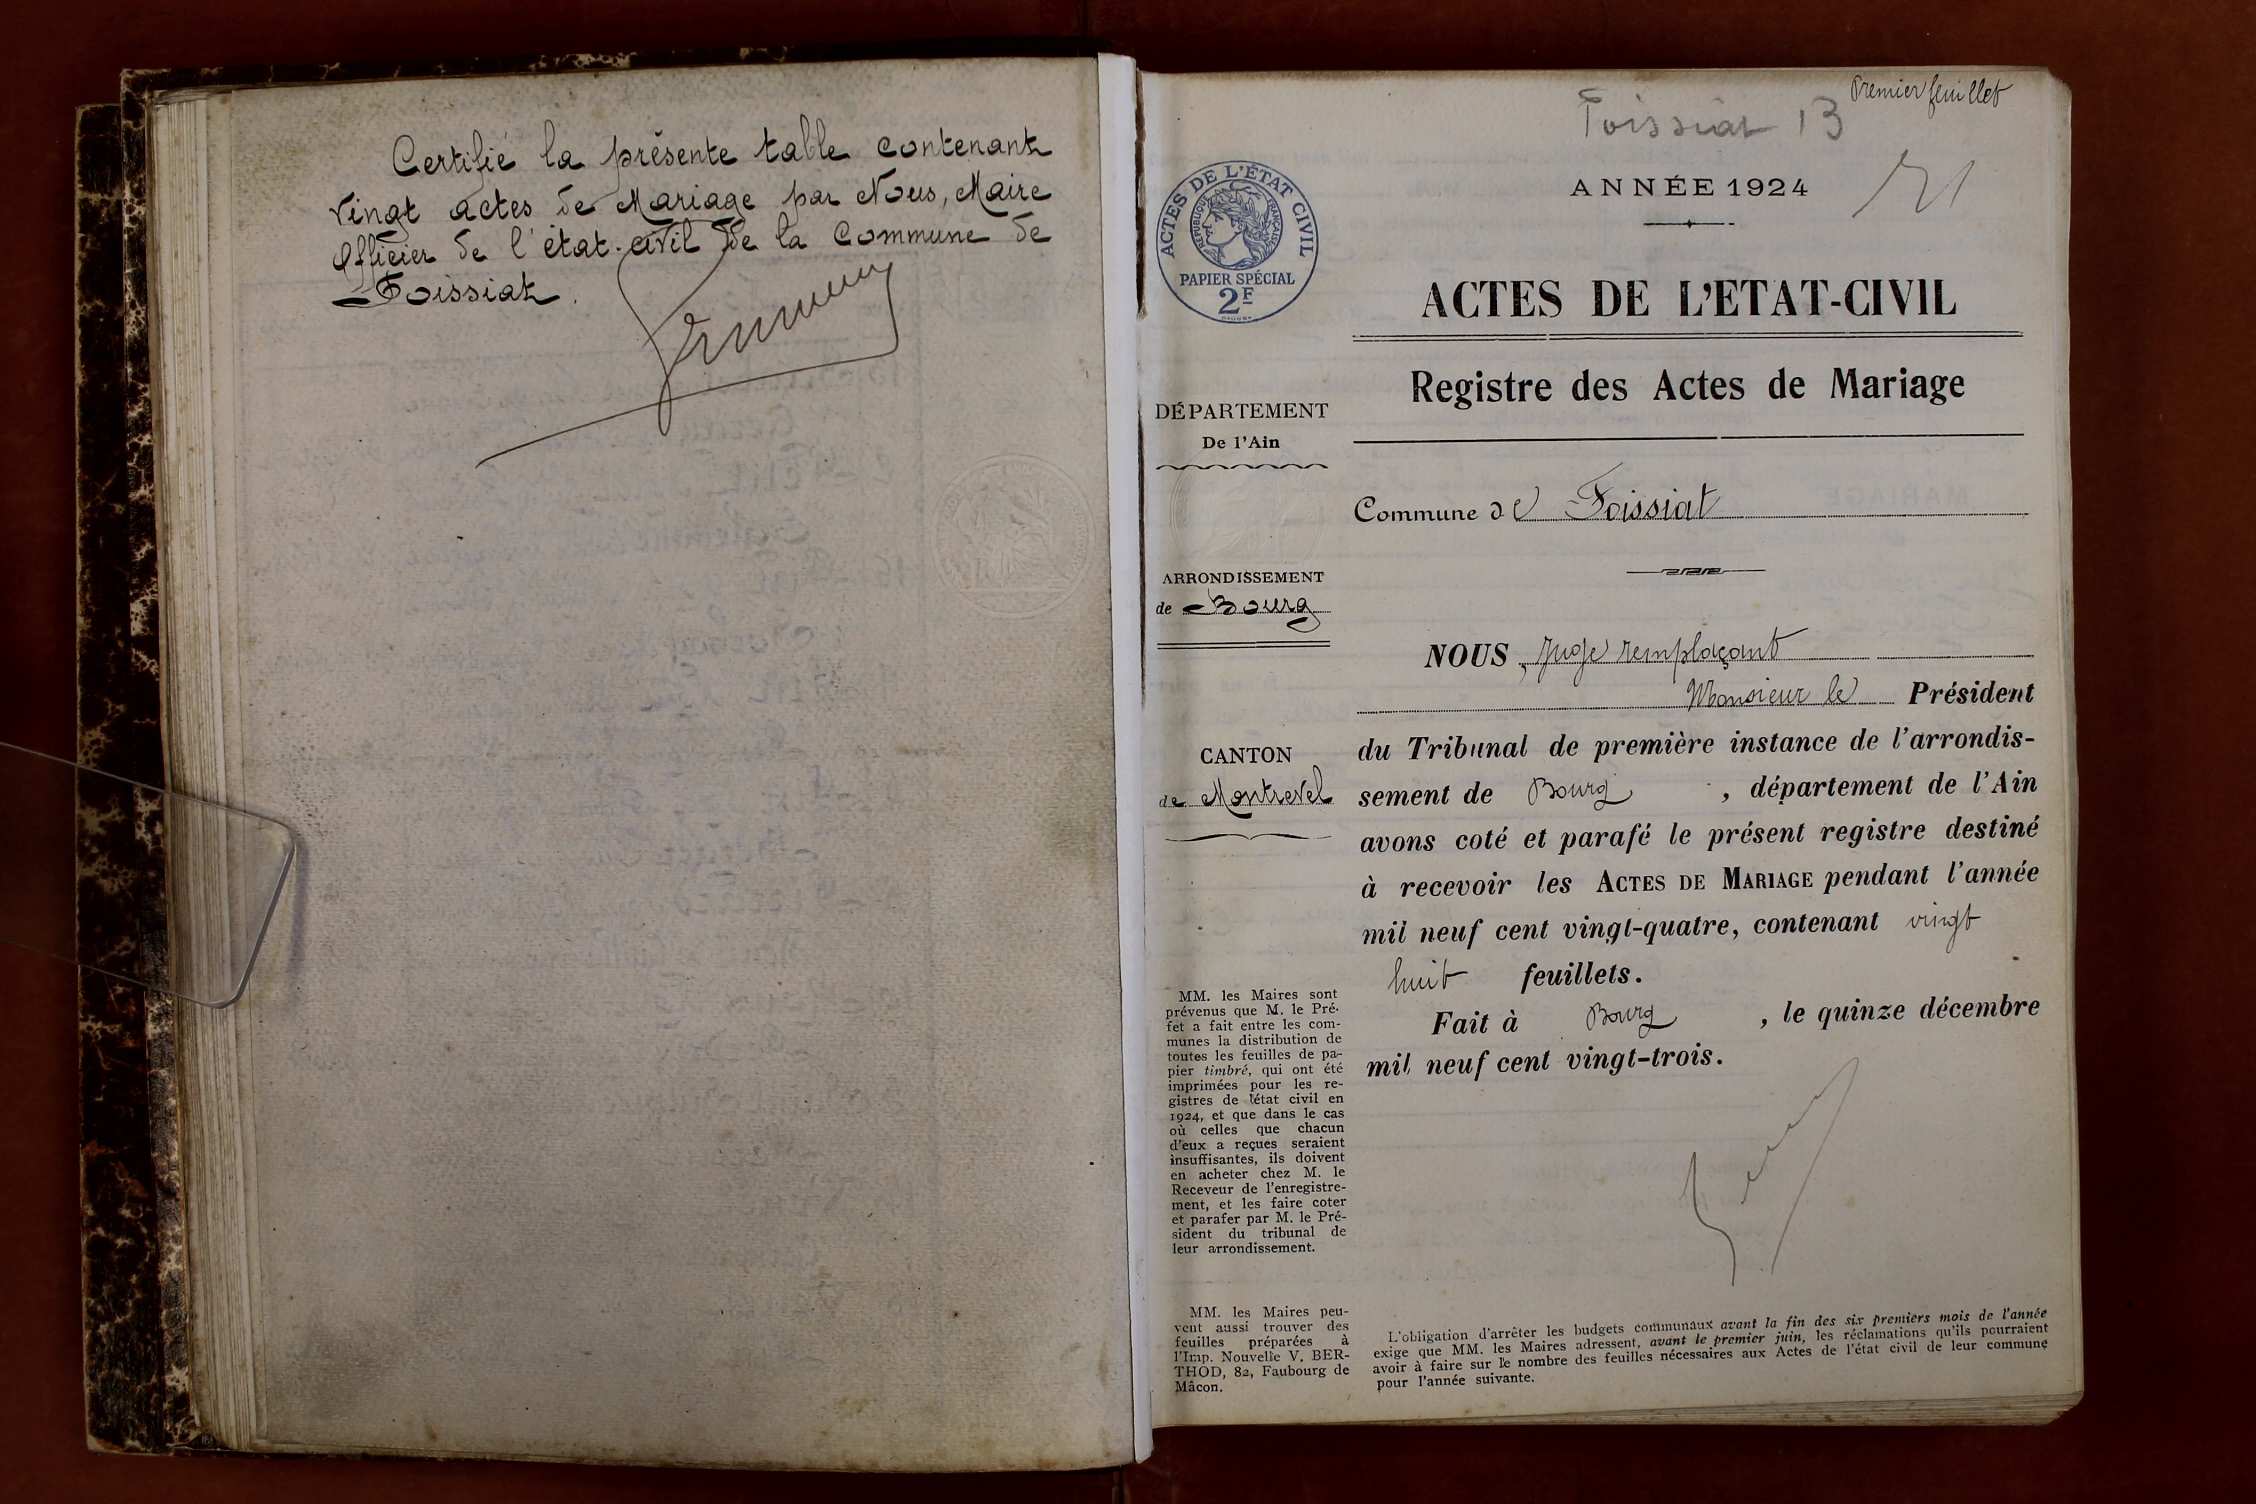 Certifié la présente table contenant
vingt actes de Mariage par Nous, Maire
Officier de l'état-civil de la Commune de
Foissiat.
Premier feuillet
Foissiat 13
ANNÉE 1924
ACTES DE L'ÉTAT CIVIL
RÉPUBLIQUE FRANÇAISE
PAPIER SPÉCIAL
2F
ACTES DE L'ETAT-CIVIL
Registre des Actes de Mariage
DÉPARTEMENT
De l'Ain
Commune de Foissiat
ARRONDISSEMENT
de Bourg
CANTON
de Montrevel
NOUS, Juge remplaçant
Monsieur le Président
du Tribunal de première instance de l'arrondis-
sement de Bourg, département de l'Ain
avons coté et parafé le présent registre destiné
à recevoir les ACTES DE MARIAGE pendant l'année
mil neuf cent vingt-quatre, contenant vingt
huit feuillets.
Fait à Bourg, le quinze décembre
mil neuf cent vingt-trois.
MM. les Maires sont
prévenus que M. le Pré-
fet a fait entre les com-
munes la distribution de
toutes les feuilles de pa-
pier timbré, qui ont été
imprimées pour les re-
gistres de l'état civil en
1924, et que dans le cas
où celles que chacun
d'eux a reçues seraient
insuffisantes, ils doivent
en acheter chez M. le
Receveur de l'enregistre-
ment, et les faire coter
et parafer par M. le Pré-
sident du tribunal de
leur arrondissement.
MM. les Maires peu-
vent aussi trouver des
feuilles préparées à
l'Imp. Nouvelle V. BER-
THOD, 82, Faubourg de
Mâcon.
L'obligation d'arrêter les budgets communaux avant la fin des six premiers mois de l'année
exige que MM. les Maires adressent, avant le premier juin, les réclamations qu'ils pourraient
avoir à faire sur le nombre des feuilles nécessaires aux Actes de l'état civil de leur commune
pour l'année suivante.